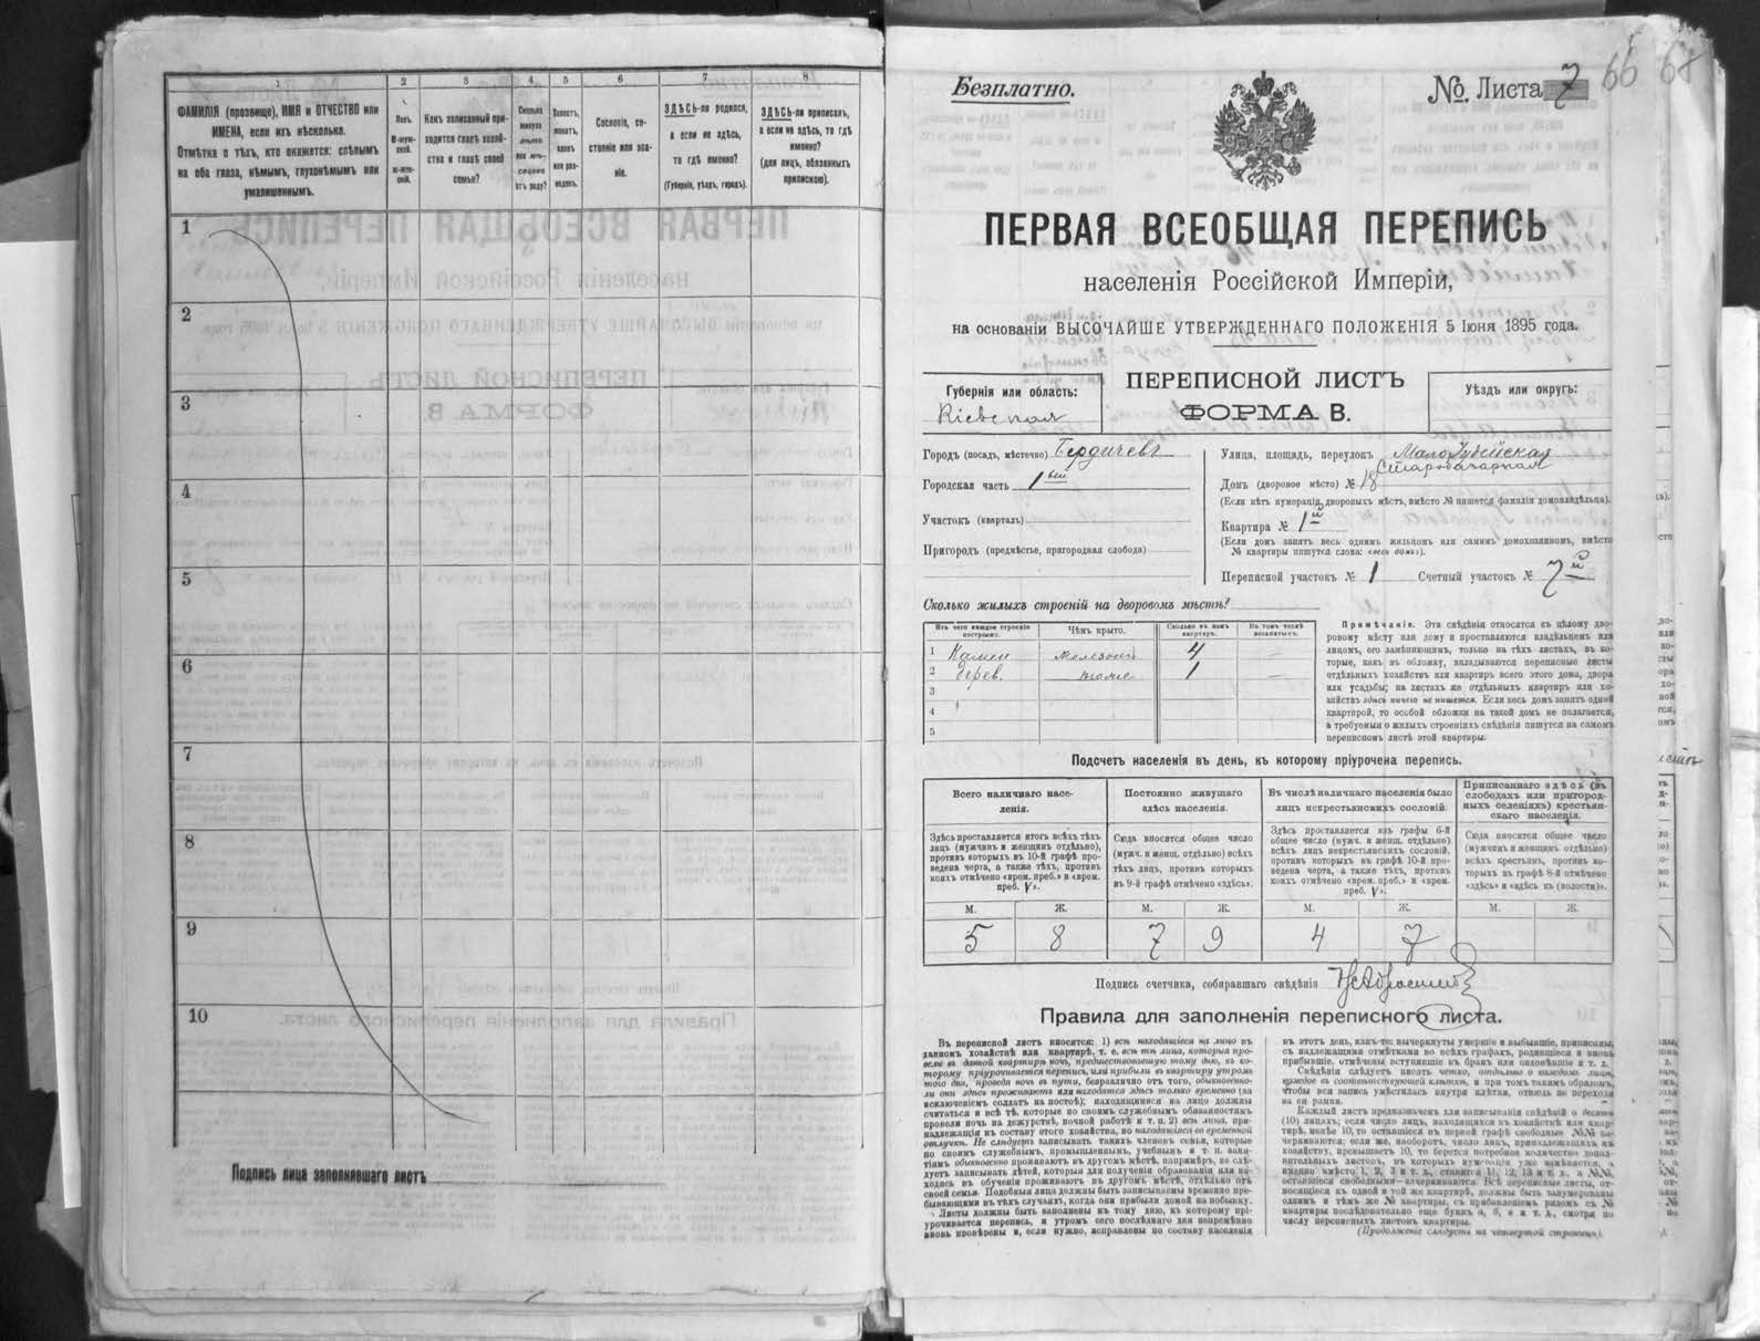 1 2 3 4 5 6 7 8
ФАМИЛІЯ (прозвище), ИМЯ и ОТЧЕСТВО или
ИМЕНА, если ихъ нѣсколько.
Отмѣтка о тѣхъ, кто окажется: слѣпымъ
на оба глаза, нѣмымъ, глухонѣмымъ или
умалишеннымъ.
Полъ.
Какъ записанный при-
ходится главѣ хозяй-
ства и главѣ своей
семьи?
Сколько
минуло
лѣтъ
или мѣ-
сяцевъ
отъ роду?
Холостъ,
женатъ,
вдовъ
или раз-
веденъ.
Сословіе, со-
стояніе или зва-
ніе.
ЗДѢСЬ-ли родился,
а если не здѣсь,
то гдѣ именно?
(Губернія, уѣздъ, городъ).
ЗДѢСЬ-ли приписанъ,
а если не здѣсь, то гдѣ
именно?
(для лицъ, обязанныхъ
припискою).
1
2
3
4
5
6
7
8
9
10
Подпись лица заполнявшаго листъ
Безплатно.
№ Листа 7 66 68
ПЕРВАЯ ВСЕОБЩАЯ ПЕРЕПИСЬ
населенія Россійской Имперіи,
на основаніи ВЫСОЧАЙШЕ УТВЕРЖДЕННАГО ПОЛОЖЕНІЯ 5 Іюня 1895 года.
Губернія или область:
Кіевская
ПЕРЕПИСНОЙ ЛИСТЪ
ФОРМА В.
Уѣздъ или округъ:
Городъ (посадъ, мѣстечко) Бердичевъ
Городская часть 1
Участокъ (кварталъ)
Пригородъ (предмѣстье, пригородная слобода)
Улица, площадь, переулокъ
Домъ (дворовое мѣсто) № 18
(Если нѣтъ нумераціи дворовыхъ мѣстъ, вмѣсто № пишется фамилія домовладѣльца).
Квартира № 1й
(Если домъ занятъ весь однимъ жильцомъ или самимъ домохозяиномъ, вмѣсто
№ квартиры пишутся слова: «весь домъ»).
Переписной участокъ № 1 Счетный участокъ № 7й
Сколько жилыхъ строеній на дворовомъ мѣстѣ?
Изъ чего каждое строеніе
построено.
Чѣмъ крыто.
Сколько въ немъ
квартиръ.
Въ томъ числѣ
незанятыхъ.
1 Камен 4 —
2 дерев. тоже 1 —
3
4
5
Примѣчаніе. Эти свѣдѣнія относятся къ цѣлому дво-
ровому мѣсту или дому и проставляются владѣльцемъ или
лицомъ, его замѣняющимъ, только на тѣхъ листахъ, въ ко-
торые, какъ въ обложку, вкладываются переписные листы
отдѣльныхъ хозяйствъ или квартиръ всего этого дома, двора
или усадьбы; на листахъ же отдѣльныхъ квартиръ или хо-
зяйствъ здѣсь ничего не пишется. Если весь домъ занятъ одной
квартирой, то особой обложки на такой домъ не полагается,
а требуемыя о жилыхъ строеніяхъ свѣдѣнія пишутся на самомъ
переписномъ листѣ этой квартиры.
Подсчетъ населенія въ день, къ которому пріурочена перепись.
Всего наличнаго насе-
ленія.
Здѣсь проставляется итогъ всѣхъ тѣхъ
лицъ (мужчинъ и женщинъ отдѣльно),
противъ которыхъ въ 10-й графѣ про-
ведена черта, а также тѣхъ, противъ
коихъ отмѣчено «врем. преб.» и «врем.
преб. V».
Постоянно живущаго
здѣсь населенія.
Сюда вносится общее число
(мужч. и женщ. отдѣльно) всѣхъ
тѣхъ лицъ, противъ которыхъ
въ 9-й графѣ отмѣчено «здѣсь».
Въ числѣ наличнаго населенія было
лицъ некрестьянскихъ сословій.
Здѣсь проставляется изъ графы 6-й
общее число (мужч. и женщ. отдѣльно)
всѣхъ лицъ некрестьянскихъ сословій,
противъ которыхъ въ графѣ 10-й про-
ведена черта, а также тѣхъ, противъ
коихъ отмѣчено «врем. преб.» и «врем.
преб. V».
Приписаннаго здѣсь (въ
слободахъ или пригород-
ныхъ селеніяхъ) крестьян-
скаго населенія.
Сюда вносится общее число
(мужчинъ и женщинъ отдѣльно)
всѣхъ крестьянъ, противъ ко-
торыхъ въ графѣ 8-й отмѣчено
«здѣсь» и «здѣсь въ (волости)».
М. Ж. М. Ж. М. Ж. М. Ж.
5 8 7 9 4 7
Подпись счетчика, собиравшаго свѣдѣнія
Правила для заполненія переписного листа.
Въ переписной листъ вносятся: 1) всѣ находящіеся на лицо въ
данномъ хозяйствѣ или квартирѣ, т. е. всѣ тѣ лица, которыя про-
вели въ данной квартирѣ ночь, предшествовавшую тому дню, къ ко-
торому пріурочивается перепись, или прибыли въ квартиру утромъ
того дня, проведя ночь въ пути, безразлично отъ того, обыкновенно-
ли они здѣсь проживаютъ или находятся здѣсь только временно (за
исключеніемъ солдатъ на постоѣ); находящимися на лицо должны
считаться и всѣ тѣ, которые по своимъ служебнымъ обязанностямъ
провели ночь на дежурствѣ, ночной работѣ и т. п. 2) всѣ лица, при-
надлежащія къ составу этого хозяйства, но находящіяся во временной
отлучкѣ. Не слѣдуетъ записывать такихъ членовъ семьи, которые
по своимъ служебнымъ, промышленнымъ, учебнымъ и т. п. заня-
тіямъ обыкновенно проживаютъ въ другомъ мѣстѣ, напримѣръ, не слѣ-
дуетъ записывать дѣтей, которыя для полученія образованія или на-
ходясь въ обученіи проживаютъ въ другомъ мѣстѣ, отдѣльно отъ
своей семьи. Подобныя лица должны быть записываемы временно пре-
бывающими въ тѣхъ случаяхъ, когда они прибыли домой на побывку.
Листы должны быть заполнены къ тому дню, къ которому прі-
урочивается перепись, и утромъ сего послѣдняго дня непремѣнно
вновь провѣрены и, если нужно, исправлены по составу населенія
въ этотъ день, какъ-то: вычеркнуты умершіе и выбывшіе, приписаны,
съ надлежащими отмѣтками во всѣхъ графахъ, родившіеся и вновь
прибывшіе, отмѣчены вступившіе въ бракъ или овдовѣвшіе и т. д.
Свѣдѣнія слѣдуетъ писать четко, отдѣльно о каждомъ лицѣ,
каждое въ соотвѣтствующей клѣткѣ, и при томъ такимъ образомъ,
чтобы вся запись умѣстилась внутри клѣтки, отнюдь не переходя
за ея рамки.
Каждый листъ предназначенъ для записыванія свѣдѣній о десяти
(10) лицахъ; если число лицъ, находящихся въ хозяйствѣ или квар-
тирѣ, менѣе 10, то оставшіеся въ первой графѣ свободные №№ за-
черкиваются; если же, наоборотъ, число лицъ, принадлежащихъ къ
хозяйству, превышаетъ 10, то берется потребное количество допол-
нительныхъ листовъ, въ которыхъ нумерація уже измѣняется, а
именно вмѣсто 1, 2, 3 и т. д., ставится 11, 12, 13 и т. д., а №№,
оставшіеся свободными—вычеркиваются. Всѣ переписные листы, от-
носящіеся къ одной и той же квартирѣ, должны быть занумерованы
однимъ и тѣмъ же № квартиры, съ прибавленіемъ рядомъ съ №
квартиры послѣдовательно еще буквъ а, б, в и т. д., смотря по
числу переписныхъ листовъ квартиры.
(Продолженіе слѣдуетъ на четвертой страницѣ).